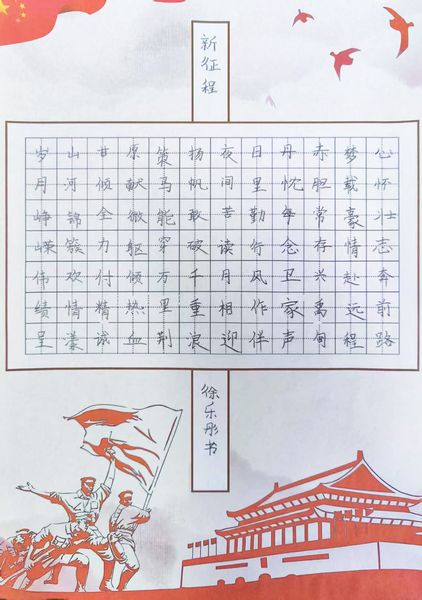 新征程
心怀壮志奔前路
梦载豪情赴远程
赤胆常存兴禹甸
丹忱每念卫家声
日里勤行风作伴
夜间苦读月相迎
扬帆敢破千重浪
策马能穿万里荆
原献微躯倾热血
甘倾全力付精诚
山河锦簇欢情濛
岁月峥嵘伟绩呈
徐乐彤书